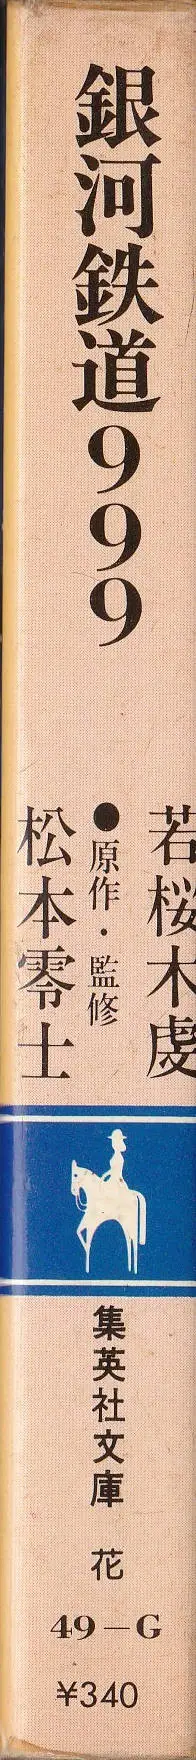 銀河鉄道999
若桜木虔
●原作・監修
松本零士
集英社文庫 花
49-G
¥340